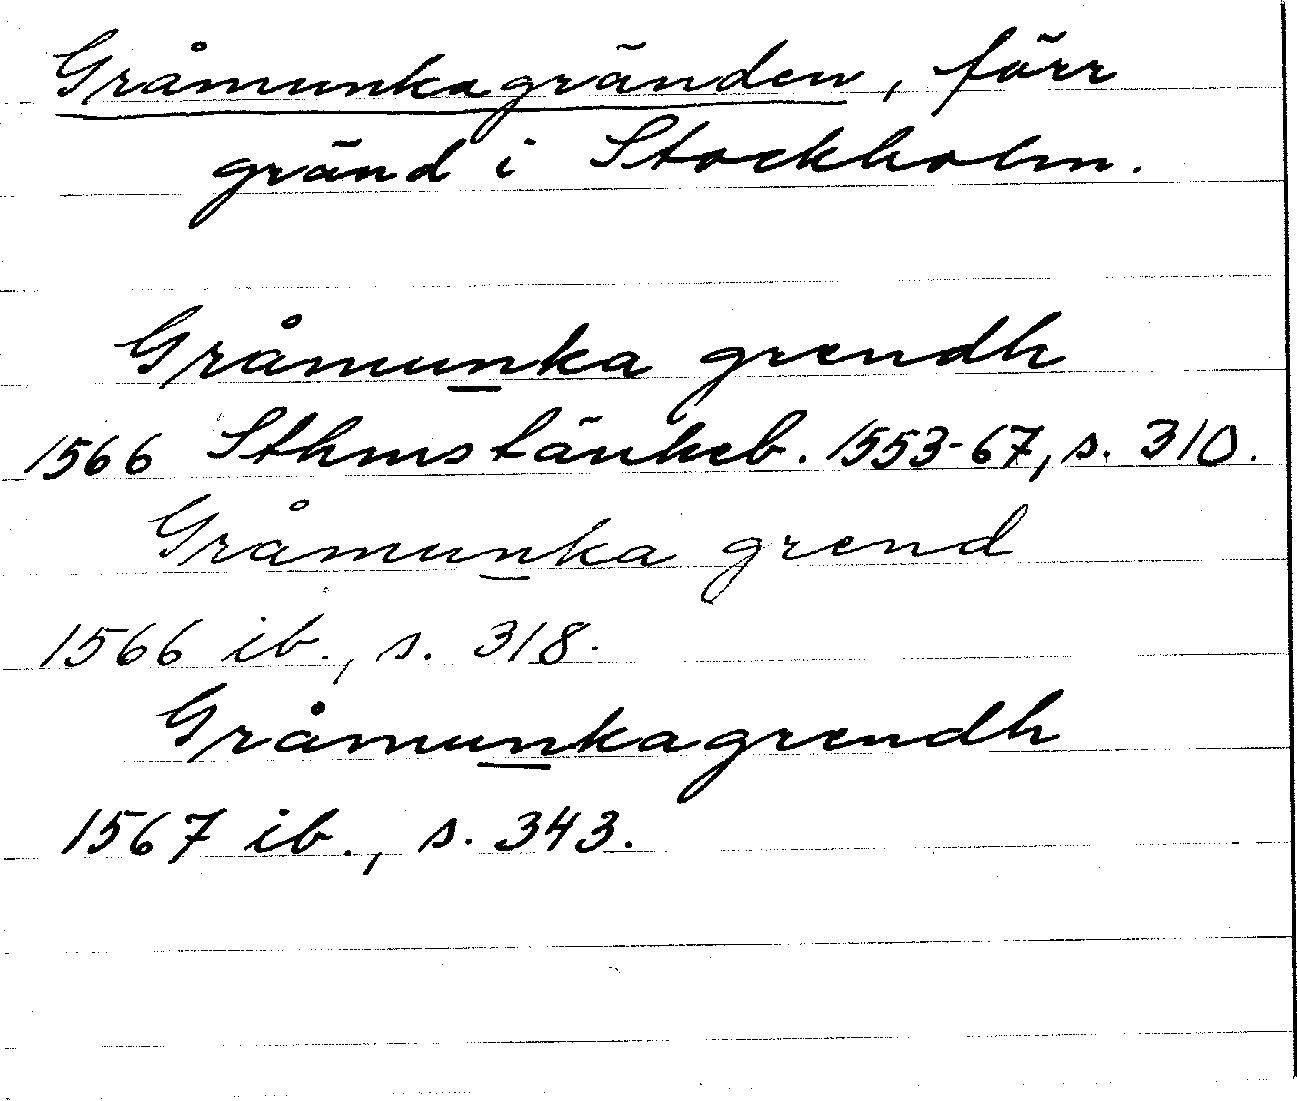 Gråmunkagränden, förr
gränd i Stockholm.
Gråmunka grendh
1566 Sthms tänkeb. 1553-67, s. 310.
Gråmunka grend
1566 ib., s. 318.
Gråmunkagrendh
1567 ib., s. 343.